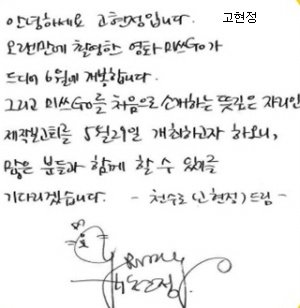 고현정
안녕하세요 고현정입니다.
오랜만에 촬영한 영화 미쓰GO가
드디어 6월에 개봉합니다.
그리고 미쓰GO를 처음으로 소개하는 뜻깊은 자리인
제작보고회를 5월29일 개최하고자 하오니,
많은 분들과 함께 할 수 있기를
기다리겠습니다. - 천수로 (고현정) 드림 -
고현정